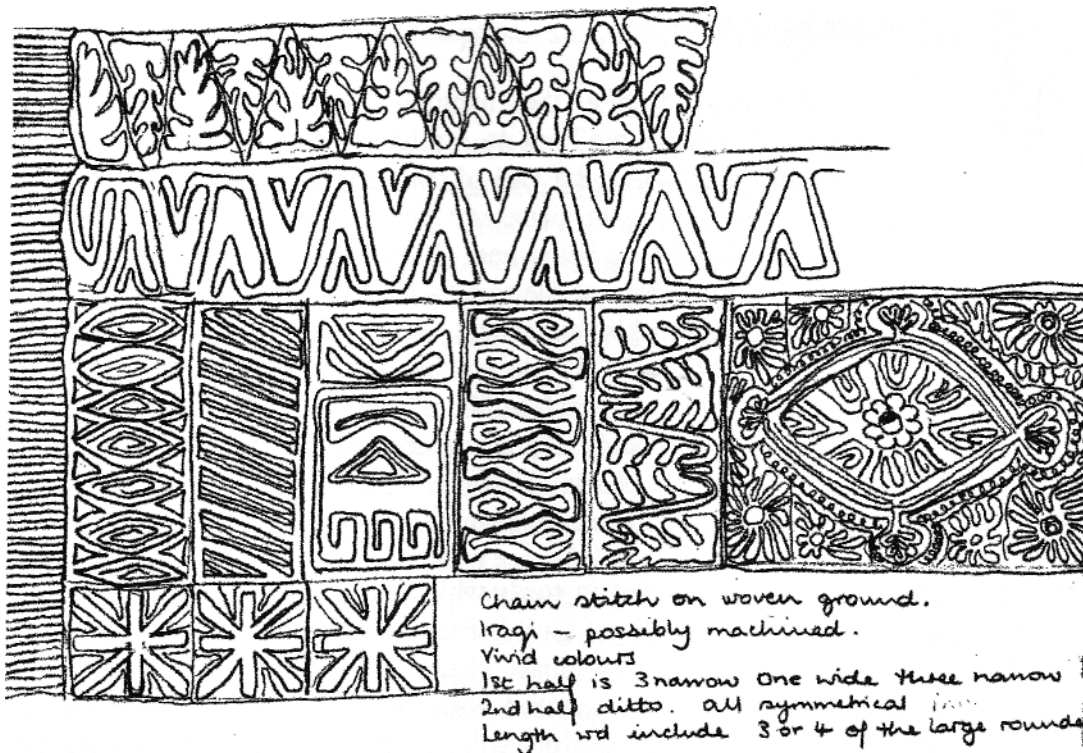 Chain stitch on woven ground.
Iraqi – possibly machined.
Vivid colours
1st half is 3 narrow one wide three narrow
2nd half ditto. all symmetrical
Length wd include 3 or 4 of the large rounde